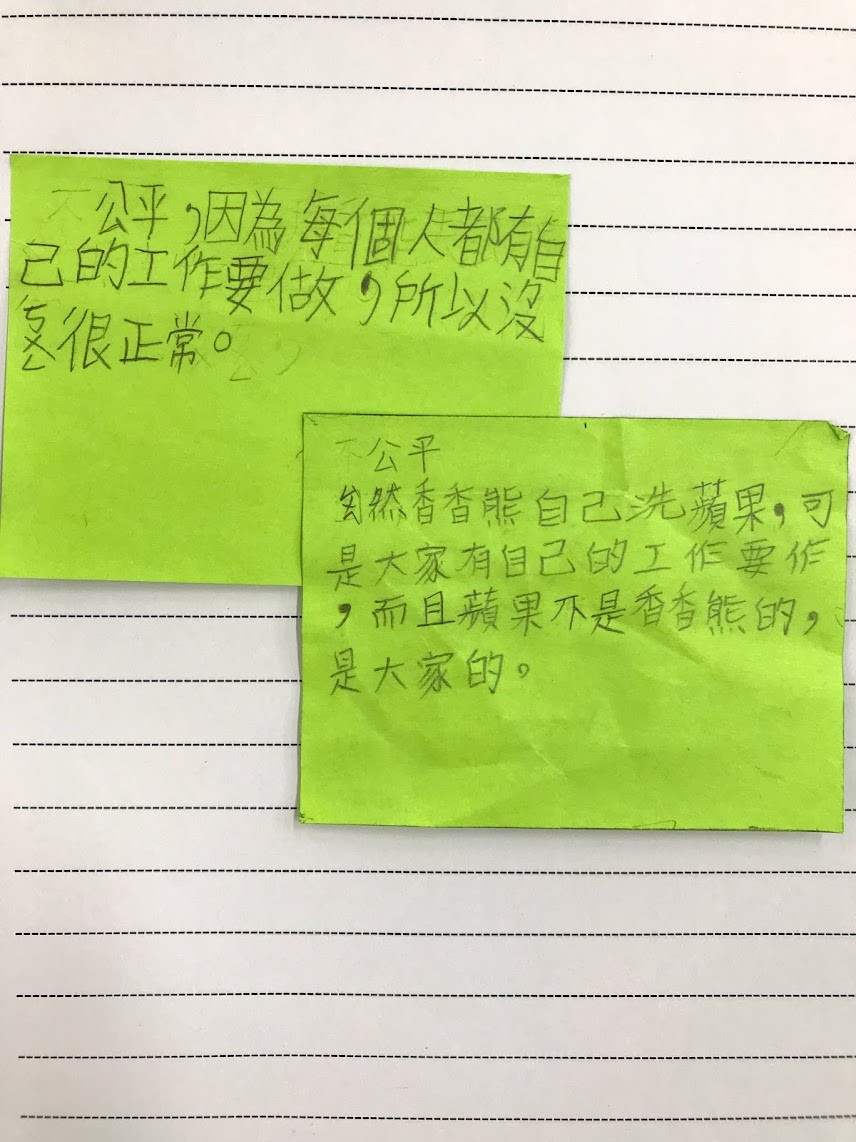 公平,因為每個人都有自
己的工作要做,所以沒
ㄎㄨㄥ很正常。
公平
然香香熊自己洗蘋果,可
是大家有自己的工作要作
,而且蘋果不是香香熊的,
是大家的。